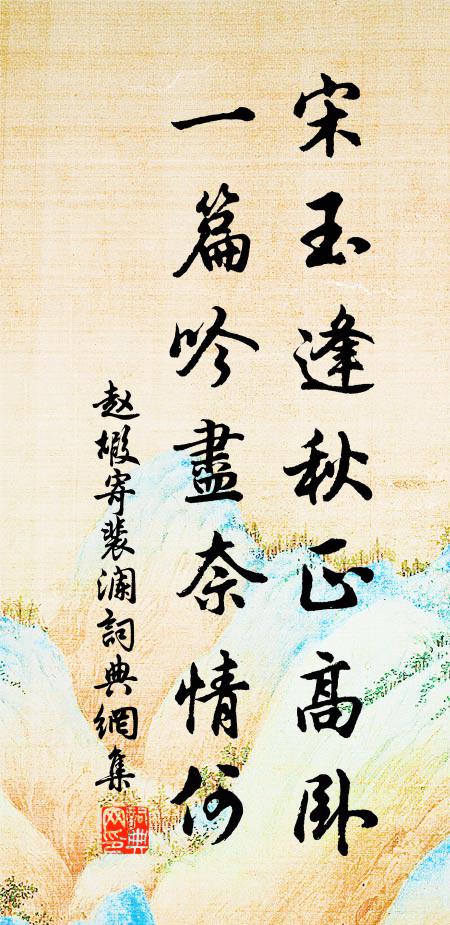 宋玉逢秋正高卧
一篇吟盡奈情何
赵嘏寄裴澜詞典網集
詞典